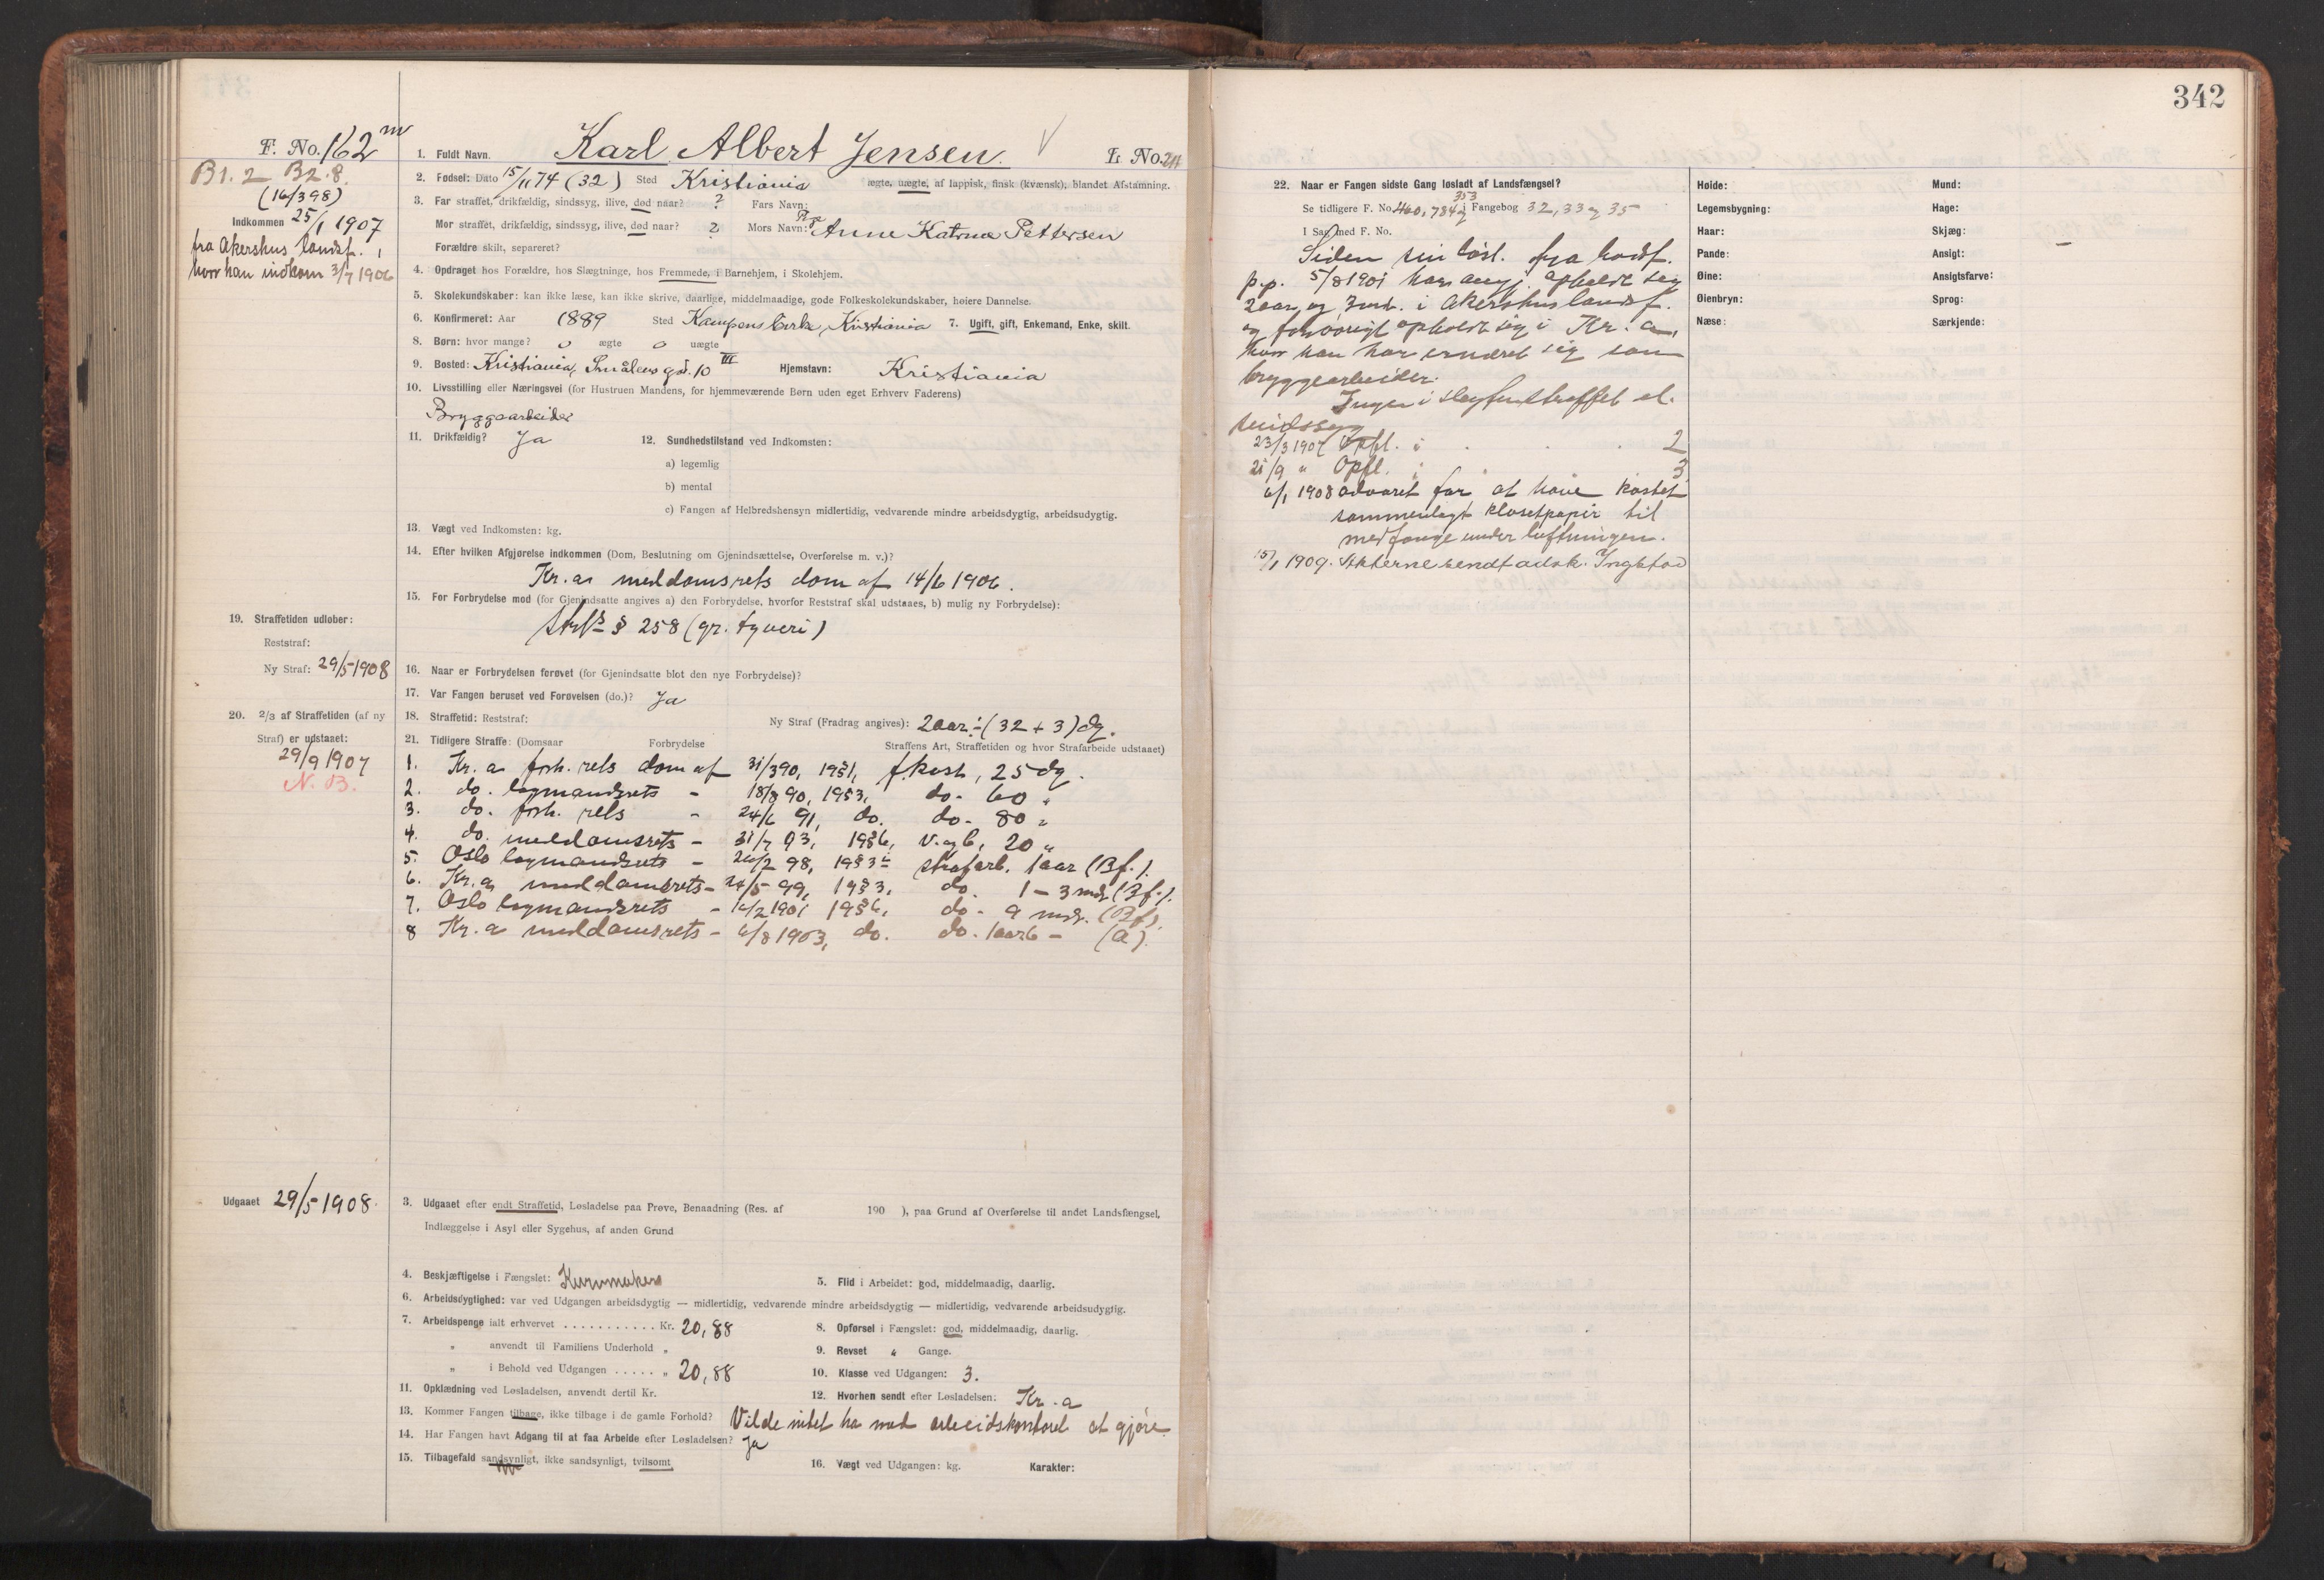 342
F. No. 162
1. Fuldt Navn. Karl Albert Jensen. L. No.
B1. 2 B2. 8.
(16/398)
Indkommen 25/1 1907
fra Akershus landsf.,
hvor han indkom 3/7 1906
2. Fødsel: Dato 15/11 74 (32) Sted Kristiania ægte, uægte, af lappisk, finsk (kvænsk), blandet Afstamning.
3. Far straffet, drikfældig, sindssyg, ilive, død naar? ? Fars Navn:
Mor straffet, drikfældig, sindssyg, ilive, død naar? ? Mors Navn: Anne Katrine Pettersen
Forældre skilt, separeret?
4. Opdraget hos Forældre, hos Slægtninge, hos Fremmede, i Barnehjem, i Skolehjem.
5. Skolekundskaber: kan ikke læse, kan ikke skrive, daarlige, middelmaadige, gode Folkeskolekundskaber, høiere Dannelse.
6. Konfirmeret: Aar 1889 Sted Kampens kirke, Kristiania 7. Ugift, gift, Enkemand, Enke, skilt.
8. Børn: hvor mange? 0 ægte 0 uægte
9. Bosted: Kristiania, Smålens gd. 10 III Hjemstavn: Kristiania
10. Livsstilling eller Næringsvei (for Hustruen Mandens, for hjemmeværende Børn uden eget Erhverv Faderens)
Bryggearbeider
11. Drikfældig? Ja 12. Sundhedstilstand ved Indkomsten:
a) legemlig
b) mental
c) Fangen af Helbredshensyn midlertidig, vedvarende mindre arbeidsdygtig, arbeidsudygtig.
13. Vægt ved Indkomsten: kg.
14. Efter hvilken Afgjørelse indkommen (Dom, Beslutning om Gjenindsættelse, Overførelse m. v.)?
Kr.a meddomsrets dom af 14/6 1906.
15. For Forbrydelse mod (for Gjenindsatte angives a) den Forbrydelse, hvorfor Reststraf skal udstaaes, b) mulig ny Forbrydelse):
§ 258 (gr. tyveri)
19. Straffetiden udløber:
Reststraf:
Ny Straf: 29/5 1908
16. Naar er Forbrydelsen forøvet (for Gjenindsatte blot den nye Forbrydelse)?
17. Var Fangen beruset ved Forøvelsen (do.)? Ja
20. 2/3 af Straffetiden (af ny
Straf) er udstaaet:
29/9 1907
N. B.
18. Straffetid: Reststraf: Ny Straf (Fradrag angives): 2 aar ÷ (32 + 3) dg.
21. Tidligere Straffe: (Domsaar Forbrydelse Straffens Art, Straffetiden og hvor Strafarbeide udstaaet)
1. Kr. a forh. rets dom af 31/3 90, 19§1, f.kost, 25 dg.
2. do. lagmandsrets - 18/8 90, 19§3, do. 60 "
3. do. forh. rets - 24/6 91, do. do. 80 "
4. do. meddomsrets - 31/7 93, 19§6, v. og b, 20 "
5. Oslo lagmandsrets - 26/2 98, 19§3 strafarb. 1 aar (Bf.).
6. Kr. a meddomsrets - 24/5 99, 19§3, do. 1 - 3 md. (Bf.).
7. Oslo lagmandsrets - 16/2 1901 19§6, do. 9 md. (Bf).
8 Kr. a meddomsrets - 6/8 1903, do. do. 1 aar 6 - (A).
Udgaaet 29/5 1908.
3. Udgaaet efter endt Straffetid, Løsladelse paa Prøve, Benaadning (Res. af 190 ), paa Grund af Overførelse til andet Landsfængsel,
Indlæggelse i Asyl eller Sygehus, af anden Grund
4. Beskjæftigelse i Fængslet: Kurvmaker 5. Flid i Arbeidet: god, middelmaadig, daarlig.
6. Arbeidsdygtighed: var ved Udgangen arbeidsdygtig — midlertidig, vedvarende mindre arbeidsdygtig — midlertidig, vedvarende arbeidsudygtig.
7. Arbeidspenge ialt erhvervet . . . . . . . . . . . Kr. 20,88 8. Opførsel i Fængslet: god, middelmaadig, daarlig.
" anvendt til Familiens Underhold " 9. Revset " Gange.
" i Behold ved Udgangen . . . . . " 20,88 10. Klasse ved Udgangen: 3.
11. Opklædning ved Løsladelsen, anvendt dertil Kr. 12. Hvorhen sendt efter Løsladelsen: Kr. a
13. Kommer Fangen tilbage, ikke tilbage i de gamle Forhold? Vilde intet ha med arbeidskontoret at gjøre.
14. Har Fangen havt Adgang til at faa Arbeide efter Løsladelsen? Ja
15. Tilbagefald sandsynligt, ikke sandsynligt, tvilsomt 16. Vægt ved Udgangen: kg. Karakter:
22. Naar er Fangen sidste Gang løsladt af Landsfængsel?
353
Se tidligere F. No. 460, 784 og i Fangebog 32, 33 og 35
I Sag med F. No.
Siden sin løsl. fra bodsf.
p.p. 5/8 1901 har angj. opholdt seg
2 aar og 3 md. i Akershus landsf.
og forøvrigt opholdt sig i Kr. a,
hvor han har ernæret sig som
bryggearbeider.
Ingen i slegten straffet el.
sindssyg
23/3 1907 Opfl. i . . . 2
21/9 " Opfl. i 3
6/1 1908 advaret for at have kastet
sammenlagt klosetpapir til
medfange under luftningen.
15/1 1909. Akterne sendt adsk. Ingstad
Høide: Mund:
Legemsbygning: Hage:
Haar: Skjæg:
Pande: Ansigt:
Øine: Ansigtsfarve:
Øienbryn: Sprog:
Næse: Særkjende: